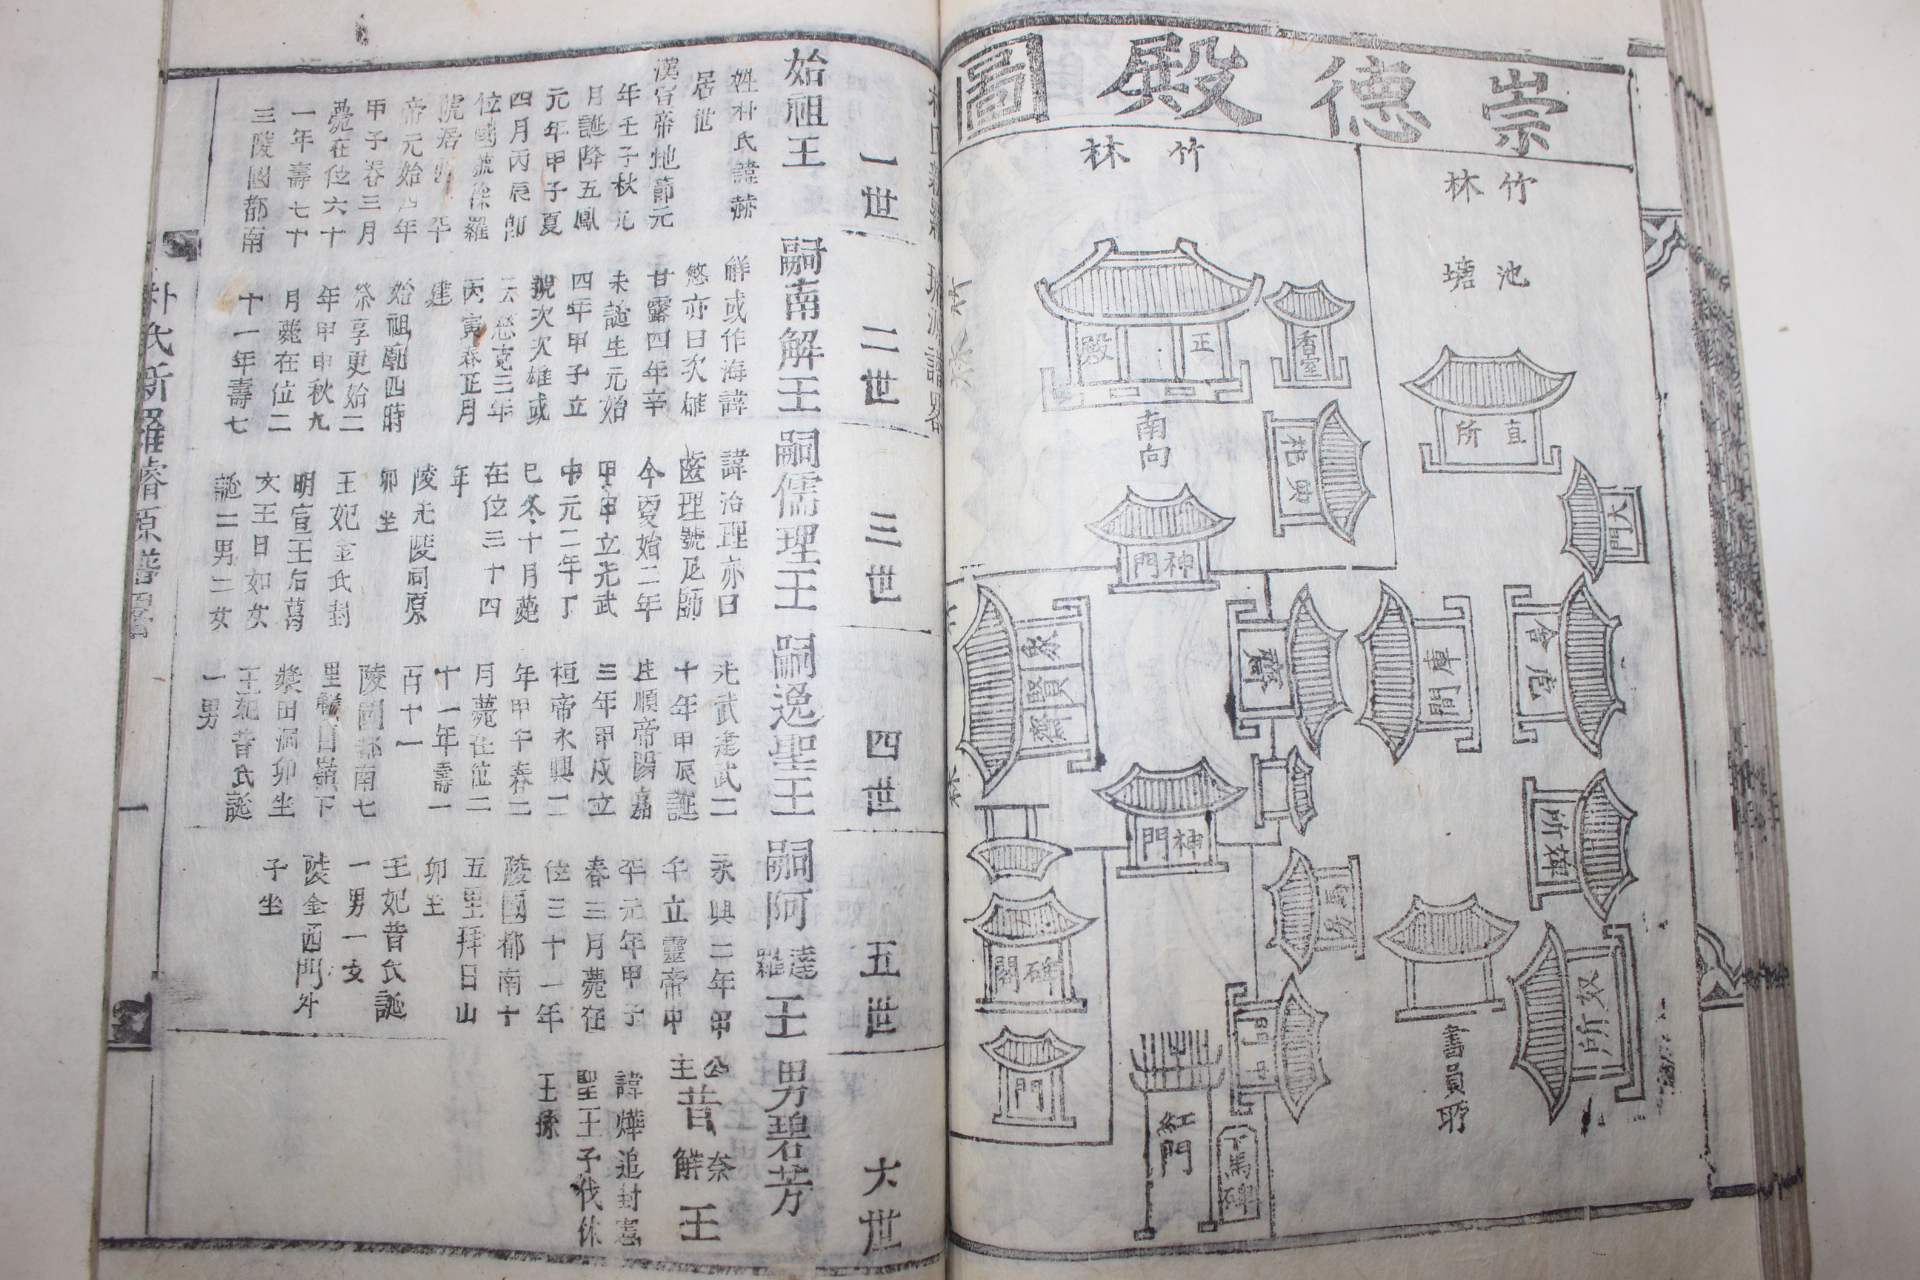 崇德殿圖
竹林
池塘
直所
大門
竹林
正殿
香室
南向
神門
庫間
神門
碑閣
門
紅門
下馬碑
書員所
奴所
朴氏新羅璿源譜畧
一世
二世
三世
四世
五世
六世
始祖王
姓朴氏諱赫
居世
漢宣帝地節元
年壬子秋九
月誕降五鳳
元年甲子夏
四月丙辰卽
位國號徐羅
帝元始四年
甲子春三月
薨在位六十
一年壽七十
三陵國都南
嗣南解王
解或作海諱
悠亦曰次雄
甘露四年辛
未誕生元始
四年甲子立
號次次雄或
丙寅春正月
建
始祖廟四時
祭享更始二
年甲申秋九
月薨在位二
十一年壽七
嗣儒理王
諱治理亦曰
今更始二年
甲申立光武
中元二年丁
巳冬十月薨
在位三十四
年
陵光陵同原
卯坐
王妃金氏封
明宣王后葛
文王日如女
誕二男二女
嗣逸聖王
光武建武二
十年甲辰誕
生順帝陽嘉
三年甲戌立
桓帝永興二
年甲午春二
月薨在位二
十一年壽一
百十一
陵國都南七
王妃昔氏誕
一男
嗣阿達羅王
永興二年甲
午立靈帝中
平元年甲子
春三月薨在
位三十一年
陵國都南十
五里拜日山
卯坐
王妃昔氏誕
一男一女
陵金西門外
子坐
男碧芳
公主昔奈解王
諱燁追封憲
聖王子伐休
王孫
一